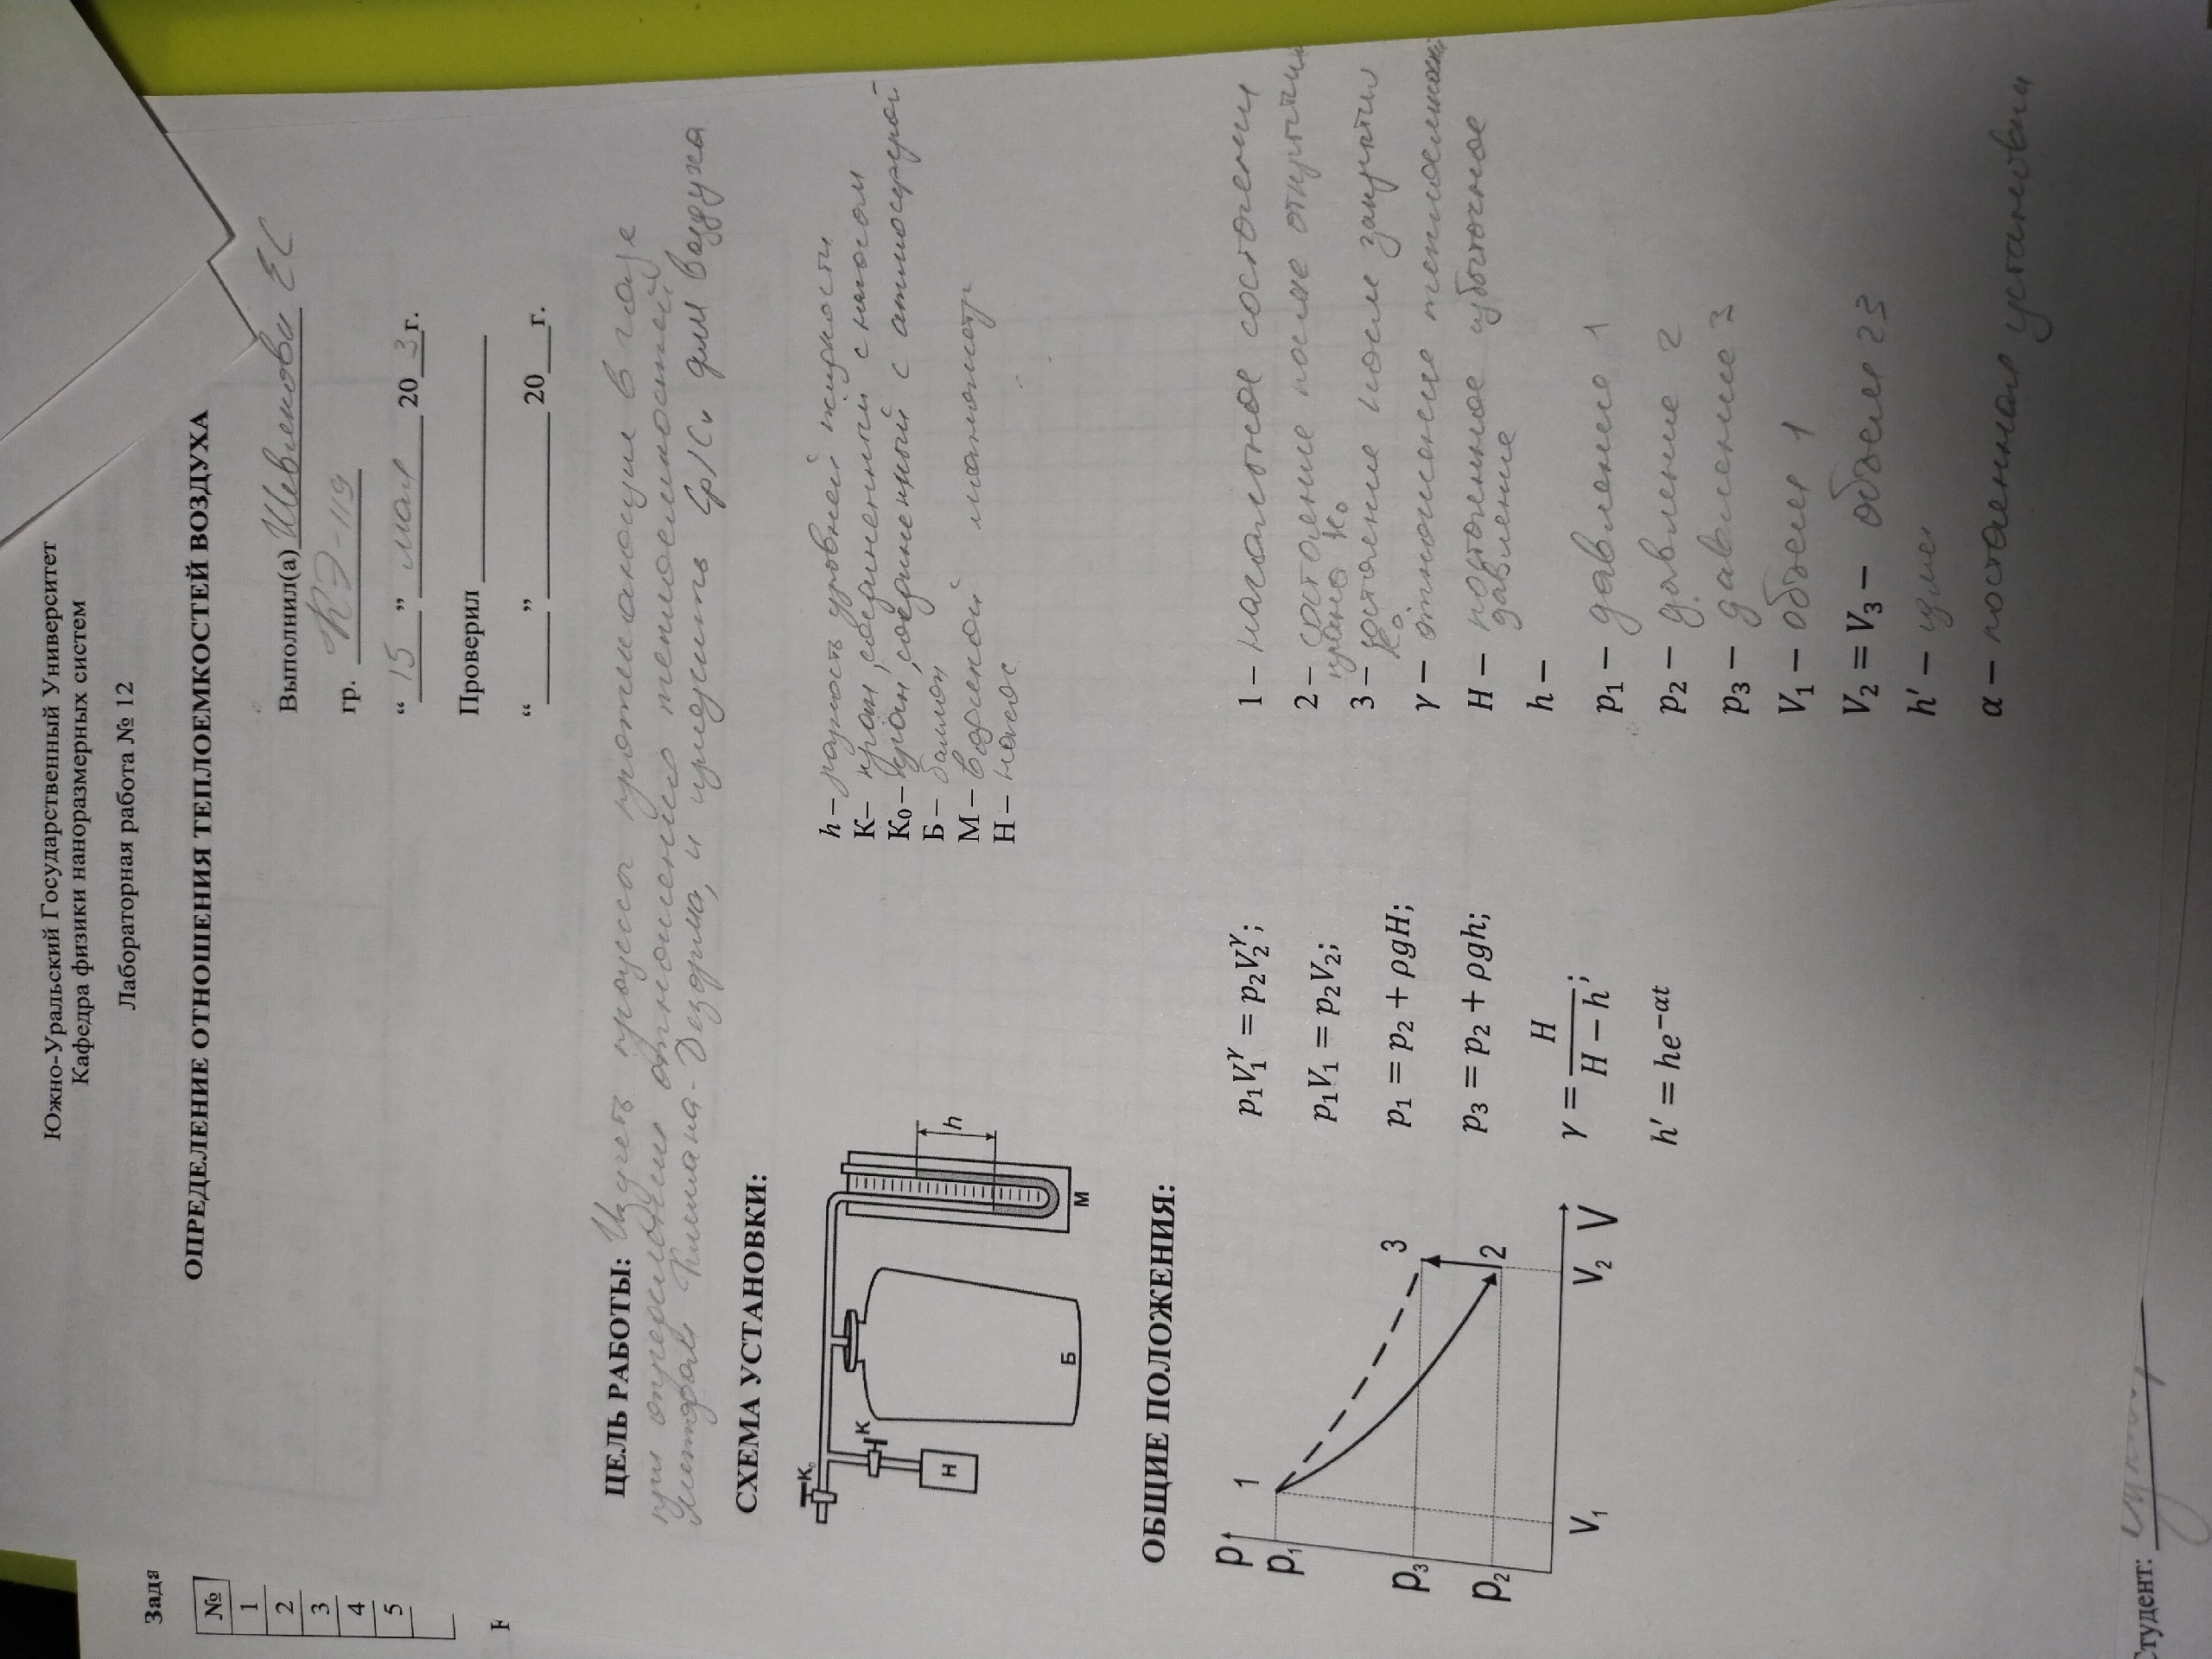 Южно-Уральский Государственный Университет
Кафедра физики наноразмерных систем
Лабораторная работа № 12
Зада
№
1
2
3
4
5
ОПРЕДЕЛЕНИЕ ОТНОШЕНИЯ ТЕПЛОЕМКОСТЕЙ ВОЗДУХА
Выполнил(а) ЕС
гр. КЭ-119
“ 15 ” мая 20 3 г.
Проверил
“ ” 20 г.
ЦЕЛЬ РАБОТЫ: Изучить процессы протекающие в газе
при определении отношения теплоемкостей
методом Клемана-Дезорма, и Cp/Cv для воздуха
СХЕМА УСТАНОВКИ:
K₀
K
H
Б
М
h
h – разность уровней жидкости
К– кран, соединенный с насосом
К₀ – кран, соединенный с атмосферой
Б – баллон
М – водяной манометр
Н – насос
ОБЩИЕ ПОЛОЖЕНИЯ:
p
p₁
p₃
p₂
1
3
2
V₁
V₂
V
p₁V₁^γ = p₂V₂^γ;
p₁V₁ = p₂V₂;
p₁ = p₂ + ρgH;
p₃ = p₂ + ρgh;
γ = H / (H − h);
h′ = he^−αt
1 – начальное состояние
2 – состояние после открытия
крана K₀
3 – состояние после закрытия
K₀
γ – отношение теплоемкостей
H – постоянное избыточное
давление
h –
p₁ – давление 1
p₂ – давление 2
p₃ – давление 3
V₁ – объем 1
V₂ = V₃ – объем 23
h′ –
α – постоянная установки
Студент: